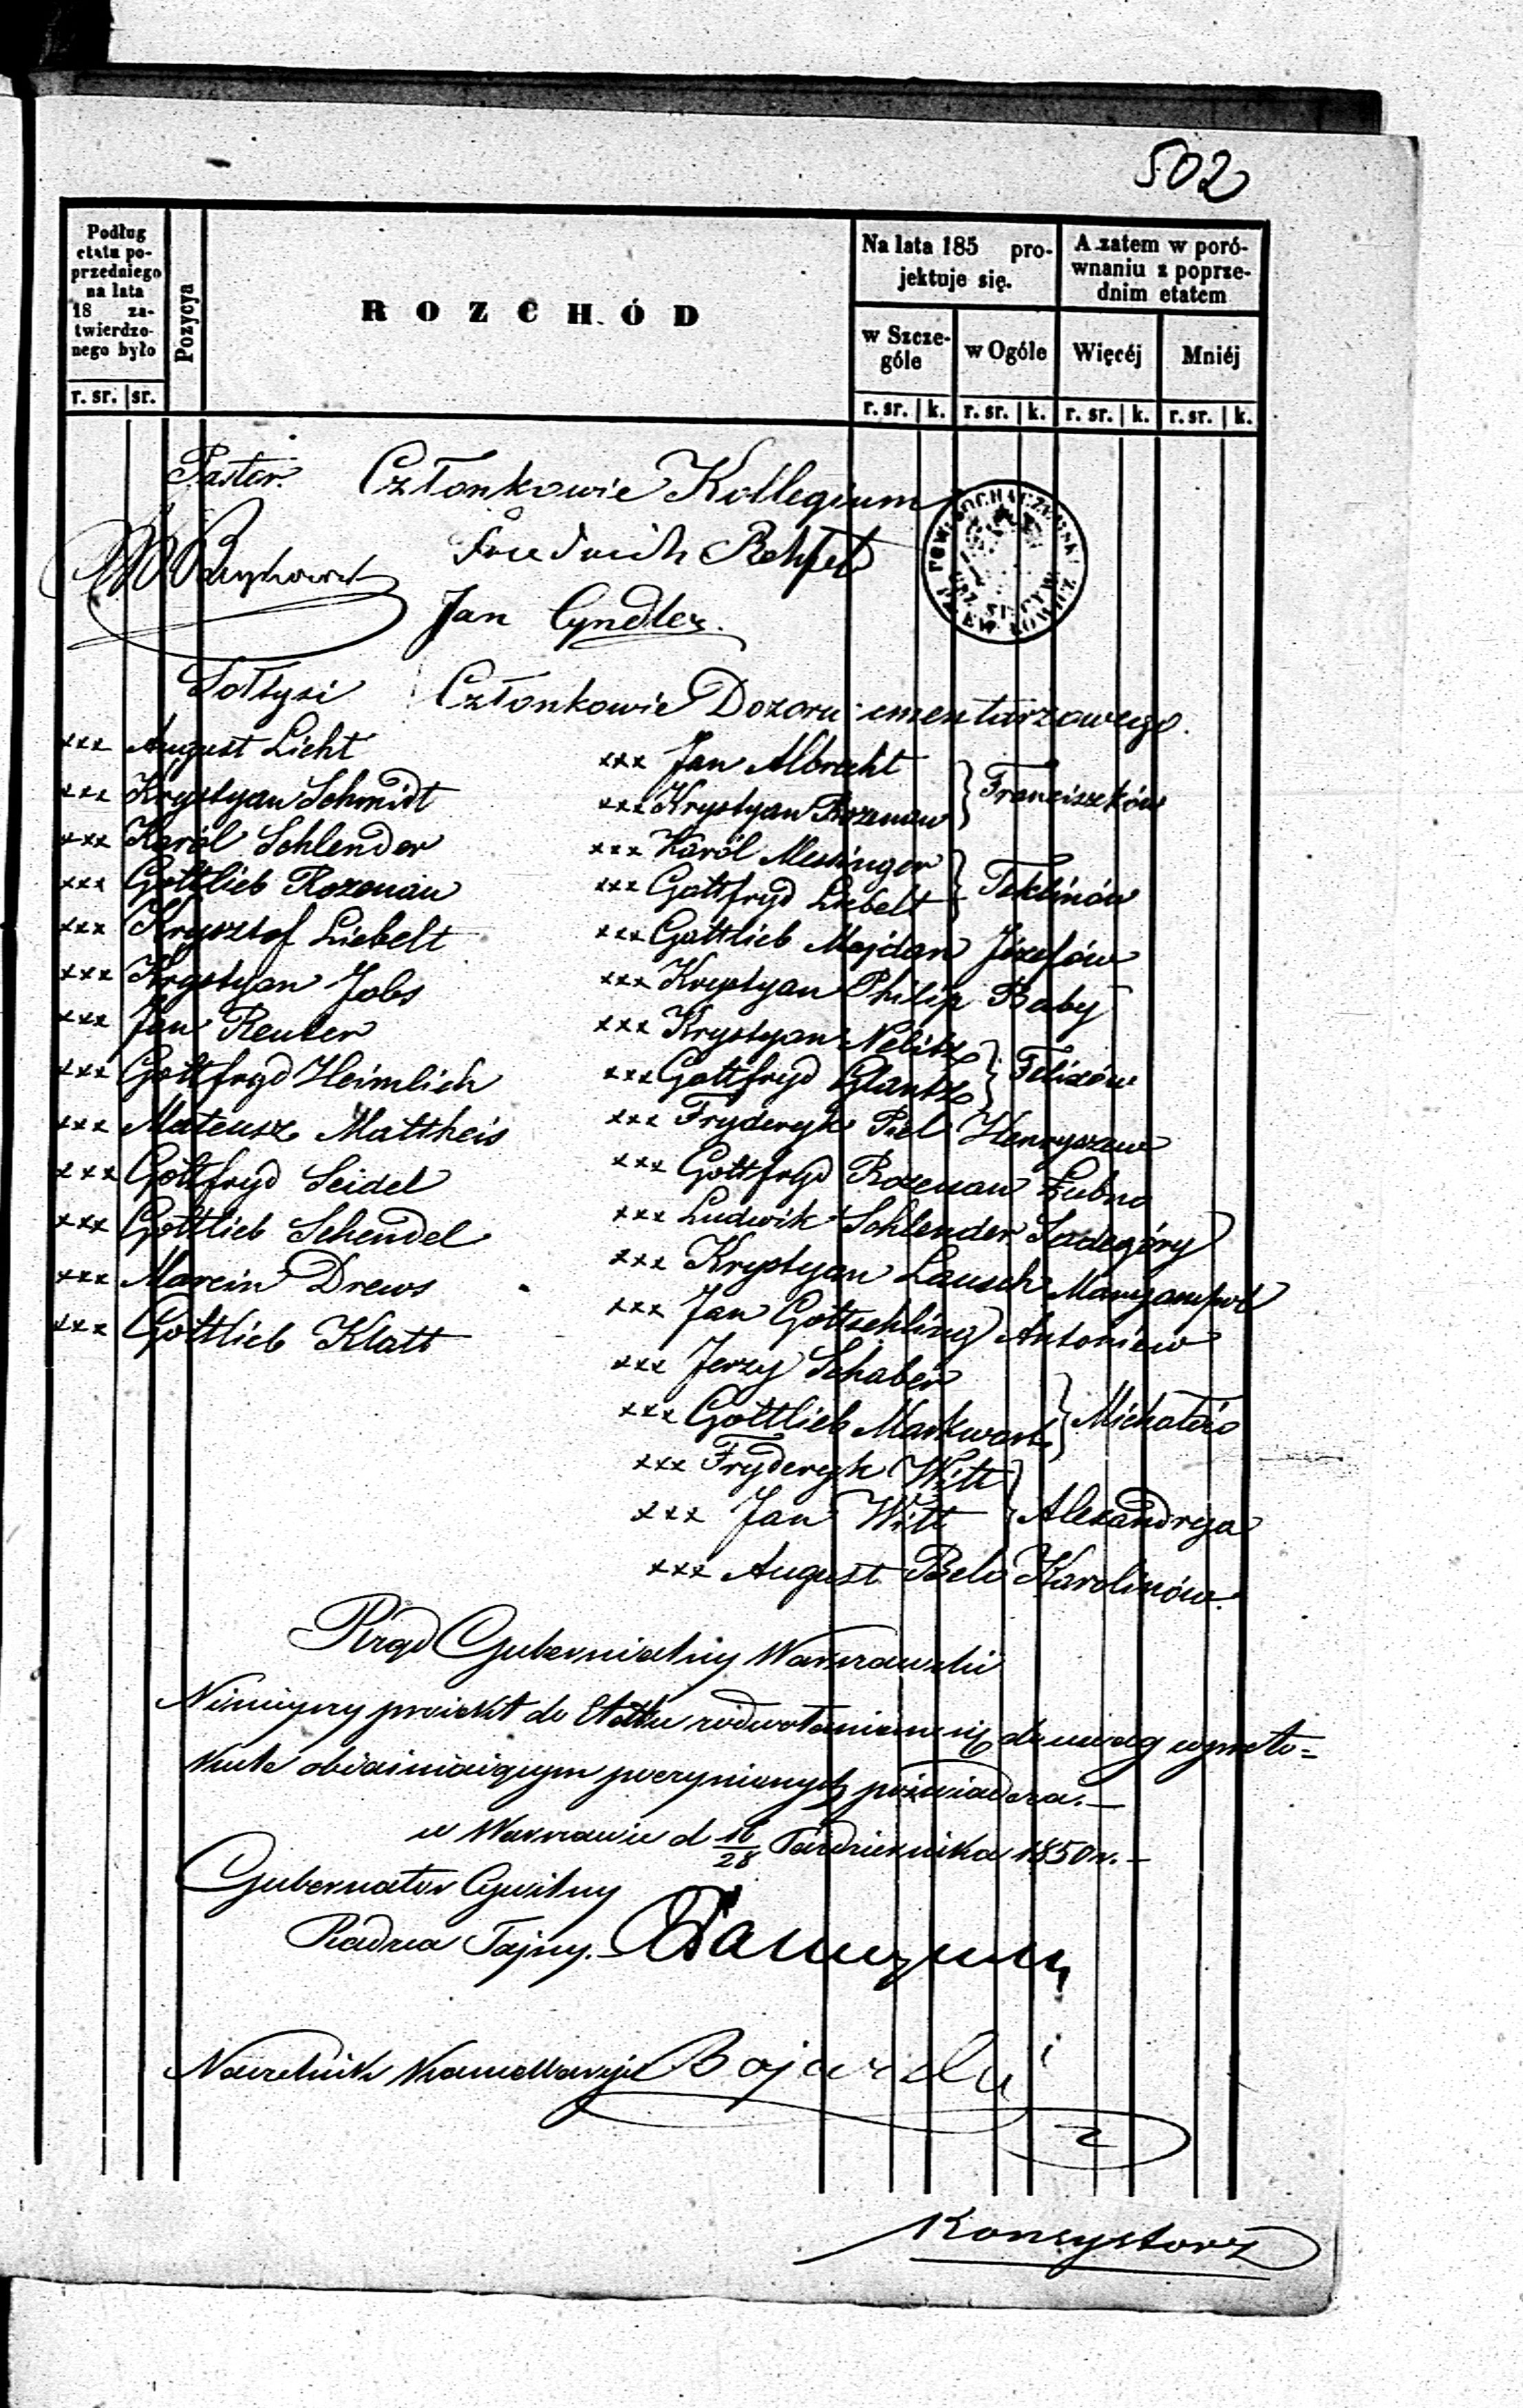 502
Podług
etatu po-
przedniego
na lata
18 za-
twierdzo-
nego było
r. sr. sr.
Pozycya
ROZCHÓD
Na lata 185 pro-
jektuje się.
w Szcze-
góle
r. sr. k.
w Ogóle
r. sr. k.
A zatem w poró-
wnaniu z poprze-
dnim etatem
Więcéj
r. sr. k.
Mniéj
r. sr. k.
Pastor.
Członkowie Kollegium
Friedrich Rehfeld
Jan Cyndler.
Sołtysi
xxx August Licht
xxx Krystyan Schmidt
xxx Karól Schlender
xxx Gottlieb Rozenau
xxx Krysztof Liebelt
xxx Krystyan Jobs
xxx Jan Reuter
xxx Gottfryd Heimlich
xxx Mateusz Mattheis
xxx Gottfryd Seidel
xxx Gottlieb Schendel
xxx Marcin Drews
xxx Gottlieb Klatt
Członkowie Dozoru cmentarzowego.
xxx Jan Albrecht
xxx Krystyan Rozenau
Franciszków
xxx Karól Messinger
xxx Gottfryd Liebelt
Teklinów
xxx Gottlieb Majdan Józefów
xxx Krystyan Philip Baby
xxx Krystyan Nelitz
xxx Gottfryd Glantz
Felixów
xxx Fryderyk Piel Henryszew
xxx Gottfryd Rozenau Łubno
xxx Ludwik Schlender Sadegóry
xxx Krystyan Lausch Maryampol
xxx Jan Gottschling Antoniew
xxx Jerzy Schaber
xxx Gottlieb Markwart
xxx Fryderyk Witt
xxx Jan Witt
Alexandrya
xxx August Karolinów.
Rząd Gubernialny Warszawski
Niniejszy proiekt do Etatu z odwołaniem się do uwag w proto=
kule obiaśniaiącym poczynionych poświadcza.—
w Warszawie d 16/28 Października 1850 r.—
Gubernator Cywilny
Radca Tajny.
Naczelnik Kancellaryi
Konsystorz